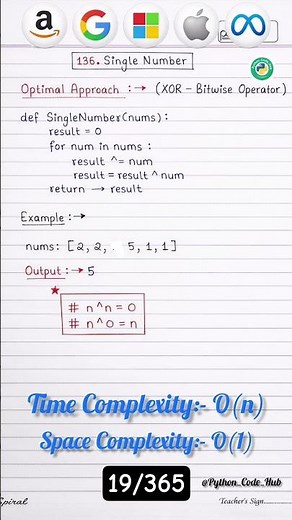 136. Single Number
Optimal Approach :→ (XOR - Bitwise Operator)
def SingleNumber(nums):
result = 0
for num in nums :
result ^= num
result = result ^ num
return → result
Example :→
nums: [2, 2, . 5, 1, 1]
Output :→ 5
# n^n = 0
# n^0 = n
Time Complexity:- O(n)
Space Complexity:- O(1)
19/365
@Python_Code_Hub
Spiral
Teacher's Sign